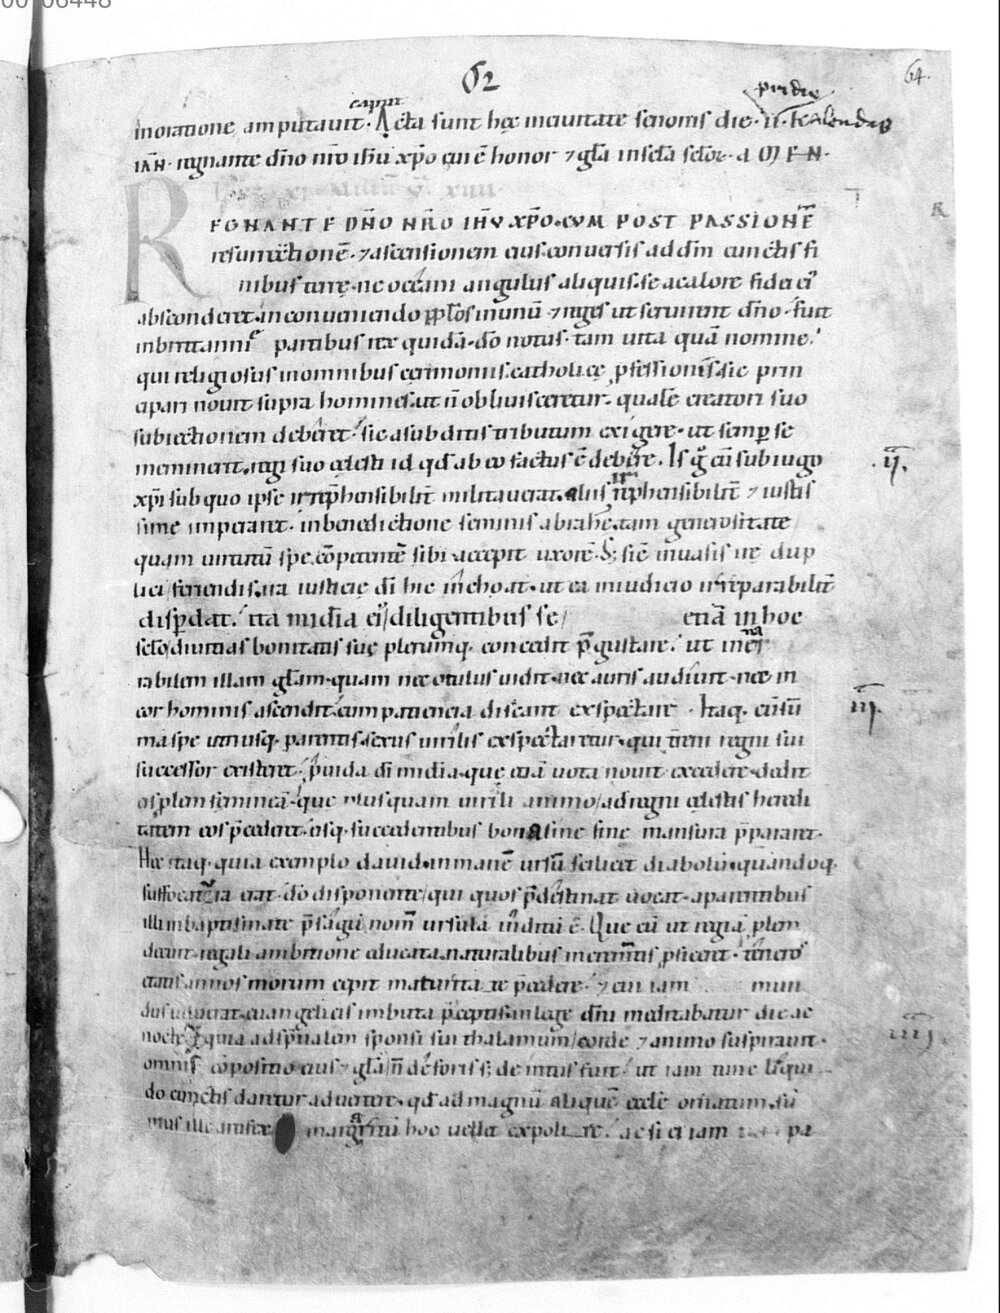 00106448
62
64.
caput pridie
in oratione amputavit. Acta sunt hęc in civitate senonis die .ii. kalendas
IAN. regnante dño nro ihu xpo cui ē honor ⁊ gła in scła scłor. AMEN.
REGNANTE DÑO NRO IHV XPO. CVM POST PASSIONĒ
resurrectionē. ⁊ ascensionem eius. conversis ad dm̄ cunctis fi
nibus terrę. ne oceani angulus aliquis. se a calore fidei ei᾽
absconderet. in conveniendo ppłos in unū ⁊ reges ut servirent dño. fuit
in brittannię partibus rex quidā. do notus. tam vita quā nomine.
qui religiosus in omnibus cerimoniis. catholicę pfessionis. sic prin
cipari novit supra homines. ut ñ oblivisceretur. qualē creatori suo
subiectionem deberet. sic a subditis tributum exigere. ut semp se
meminerit. regi suo cęlesti id qd ab eo factus ē debere. Is g cū sub iugo .ij.
xpi sub quo ipse irrephensibilit militaverat. aliis irrephensibilit ⁊ iustis
sime imperaret. in benedictione seminis abrahę. tam generositate
quam virtutū spe. cōpetentē sibi accepit uxorē. S; sic invasis rę dup
lici feriendis. ira iusticię di hic inchoat. ut ea in iudicio irreparabilit
disperdat. ita mīdia ei᾽ diligentibus se etiā in hoc
scło divitias bonitatis suę plerumq. concedit p̄gustare. ut inenar
rabilem illam głam. quam nec oculus vidit. nec auris audivit. nec in
cor hominis ascendit. cum patiencia discant exspectare. Itaq. cū sū iij.
ma spe utriusq. parentis. sexus virilis exspectaretur. qui tr̄eni regni sui
successor existeret. pvida di mīdia. que etiā vota novit excedere. dedit
os plem femineā. quę plusquam virili animo ad regni cęlestis heredi
tatem eos p̄cederet. eisq. succedentibus bona sine fine mansura p̄pararet.
Hec itaq. quia exemplo david. inmanē ursū scilicet diabolū. quandoq.
suffocatura erat. do disponente qui quos p̄destinat vocat. a parentibus
illi in baptismate p̄sagū nom̄ ursula inditū ē. Que cū ut regiā plem
decuit. regali ambitione educata. naturalibus incremtis pficeret. teneros
etatis annos morum cępit maturitate p̄cedere. ⁊ cui iam mun
dus viluerat. evangelicis imbuta p̄ceptis. in lege dñi meditabatur die ac
nocte. Et quia ad spualem sponsi sui thalamum corde ⁊ animo suspiravit. iiij
omnis cōpositio eius ⁊ gła ñ de foris s; de intus fuit. ut iam tunc liqui
do cunctis daretur advertere. qd ad magnū aliquē ecclę ornatum. sū
mus ille artifex margaritū hoc vellet expolire. ac si ei iam pa